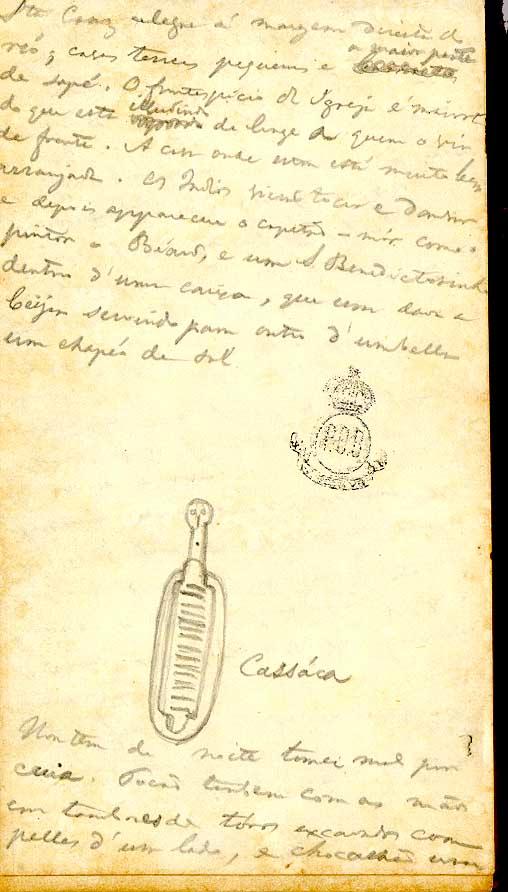 Sta Cruz alegre á margem direita do
rio; casas terreas pequenas e a maior parte
de sapé. O frontespicio da Igreja é maior
do que esta illudindo de longe a quem o vir
de frente. A casa onde estou está muito bem
arranjada. Os Indios vierão tocar e dansar
e depois appareceu o capitão-mór como o
pintou o Biard, e um S. Benedictosinho
dentro d'uma caixa, que um dava a
beijar servindo para outro d'umbella
um chapéo de sol.
P.O.B
Cassáca
Hontem de noite tomei mal por
cuia. Tocão tambem com as mãos
em tambores de tóros excavados com
pelles d'um lado, e chocalhão um